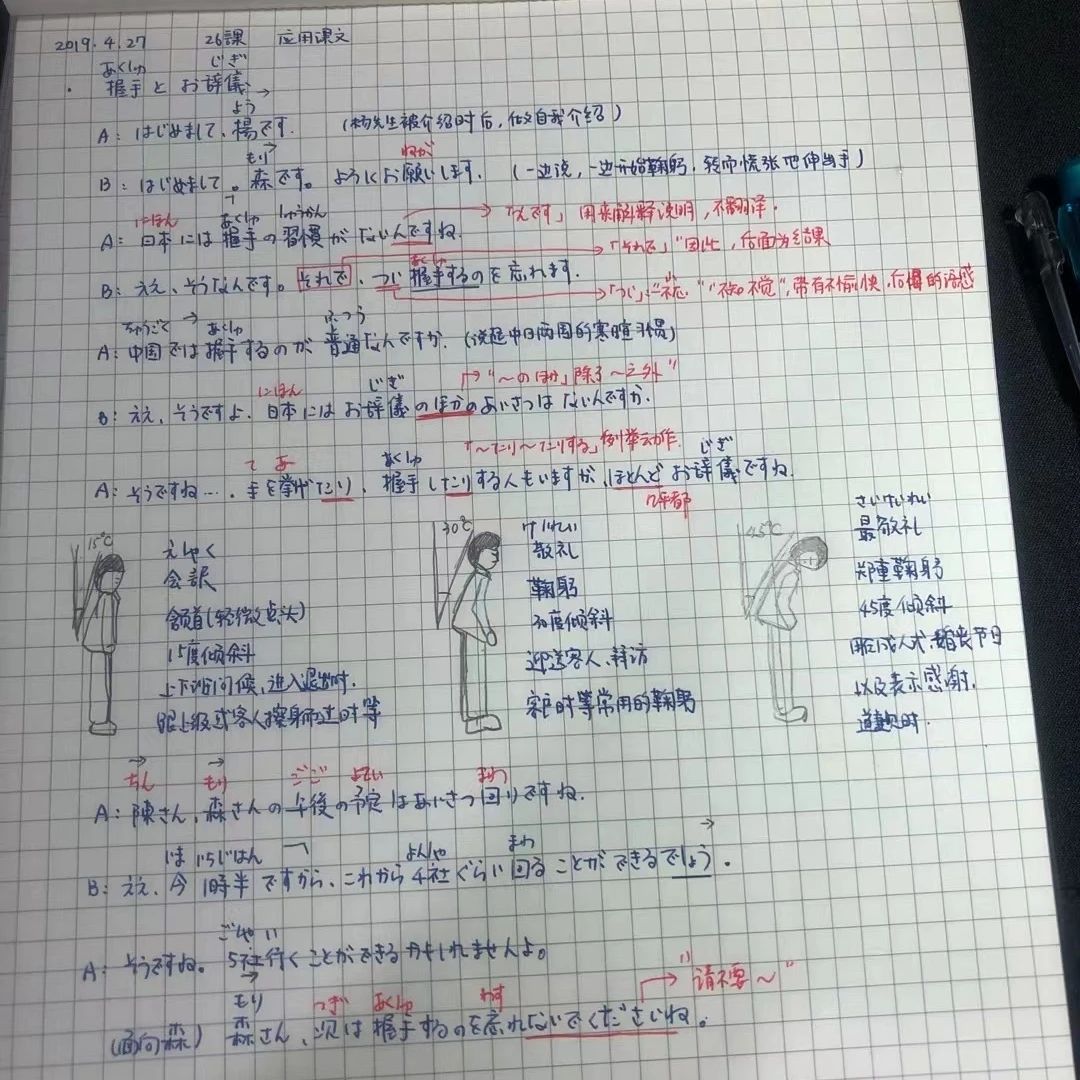 2019.4.27 26課 应用课文
あくしゅ じぎ
握手とお辞儀
よう
A: はじめまして、楊です. (杨先生被介绍时后,做自我介绍)
もり ねが
B: はじめまして。森です。ようしくお願いします. (一边说,一边开始鞠躬,转而慌张地伸出手)
にほん あくしゅ しゅうかん 「んです」用来解释说明,不翻译.
A: 日本には握手の習慣がないんですね.
「それで」"因此,后面为结果
あくしゅ
B: ええ、そうなんです。それで、つい握手するのを忘れます.
「つい」:"不知不觉",带有不愉快,后悔的语感
ちゅうごく あくしゅ ふつう
A: 中国では握手するのが普通なんですか. (谈起中日两国的寒暄习惯)
にほん じぎ "~のほか」除了~之外"
B: ええ、そうですよ.日本にはお辞儀のほかのあいさつはないんですか.
「~たり~たりする」例举动作.
て あ あくしゅ じぎ
A: そうですね….手を挙げたり、握手したりする人もいますが、ほとんどお辞儀ですね.
几乎都
15°C
えしゃく
会釈
颔首(轻微点头)
15度倾斜
上下班问候,进入退出时.
跟上级或客人擦身而过时等
30°C
けいれい
敬礼
鞠躬
30度倾斜
迎送客人、拜访
客户时等常用的鞠躬
45°C
さいけいれい
最敬礼
郑重鞠躬
45度倾斜
用于成人式、婚丧节日
以及表示感谢.
道歉时.
ちん もり ごご よてい まわ
A: 陳さん、森さんの午後の予定はあいさつ回りですね.
いま いちじはん よんしゃ まわ
B: ええ、今1時半ですから、これから4社ぐらい回ることができるでしょう.
ごしゃ い
A: そうですね。5社行くことができるかもしれませんよ。
"请不要~"
もり つぎ あくしゅ わす
(面向森) 森さん、次は握手するのを忘れないでくださいね。